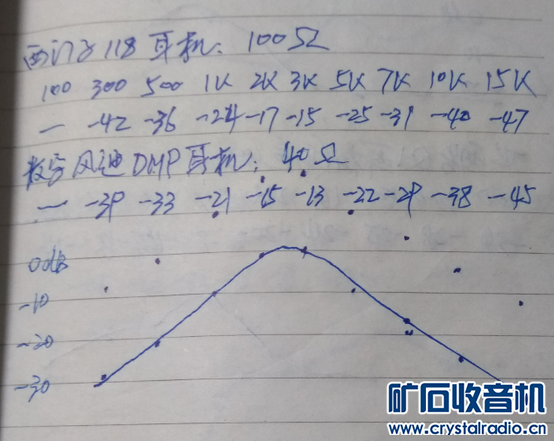 西门子118耳机: 100Ω
100 300 500 1K 2K 3K 5K 7K 10K 15K
— -42 -36 -24 -17 -15 -25 -31 -40 -47
数字风迪DMP耳机: 40Ω
— -39 -33 -21 -15 -13 -22 -29 -38 -45
0db
-10
-20
-30
矿石收音机
www.crystalradio.cn